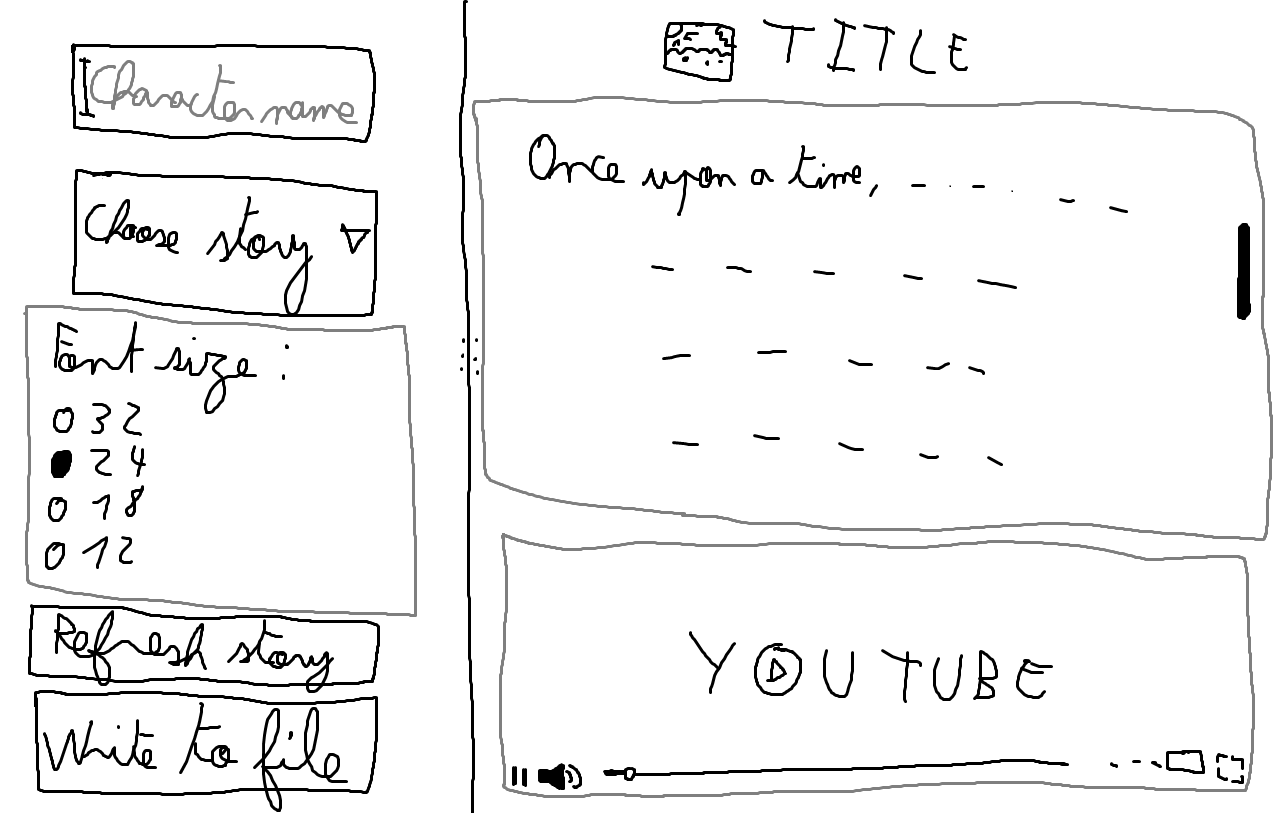 Character name
Choose story
Font size :
32
24
18
12
Refresh story
Write to file
TITLE
Once upon a time,
YOUTUBE